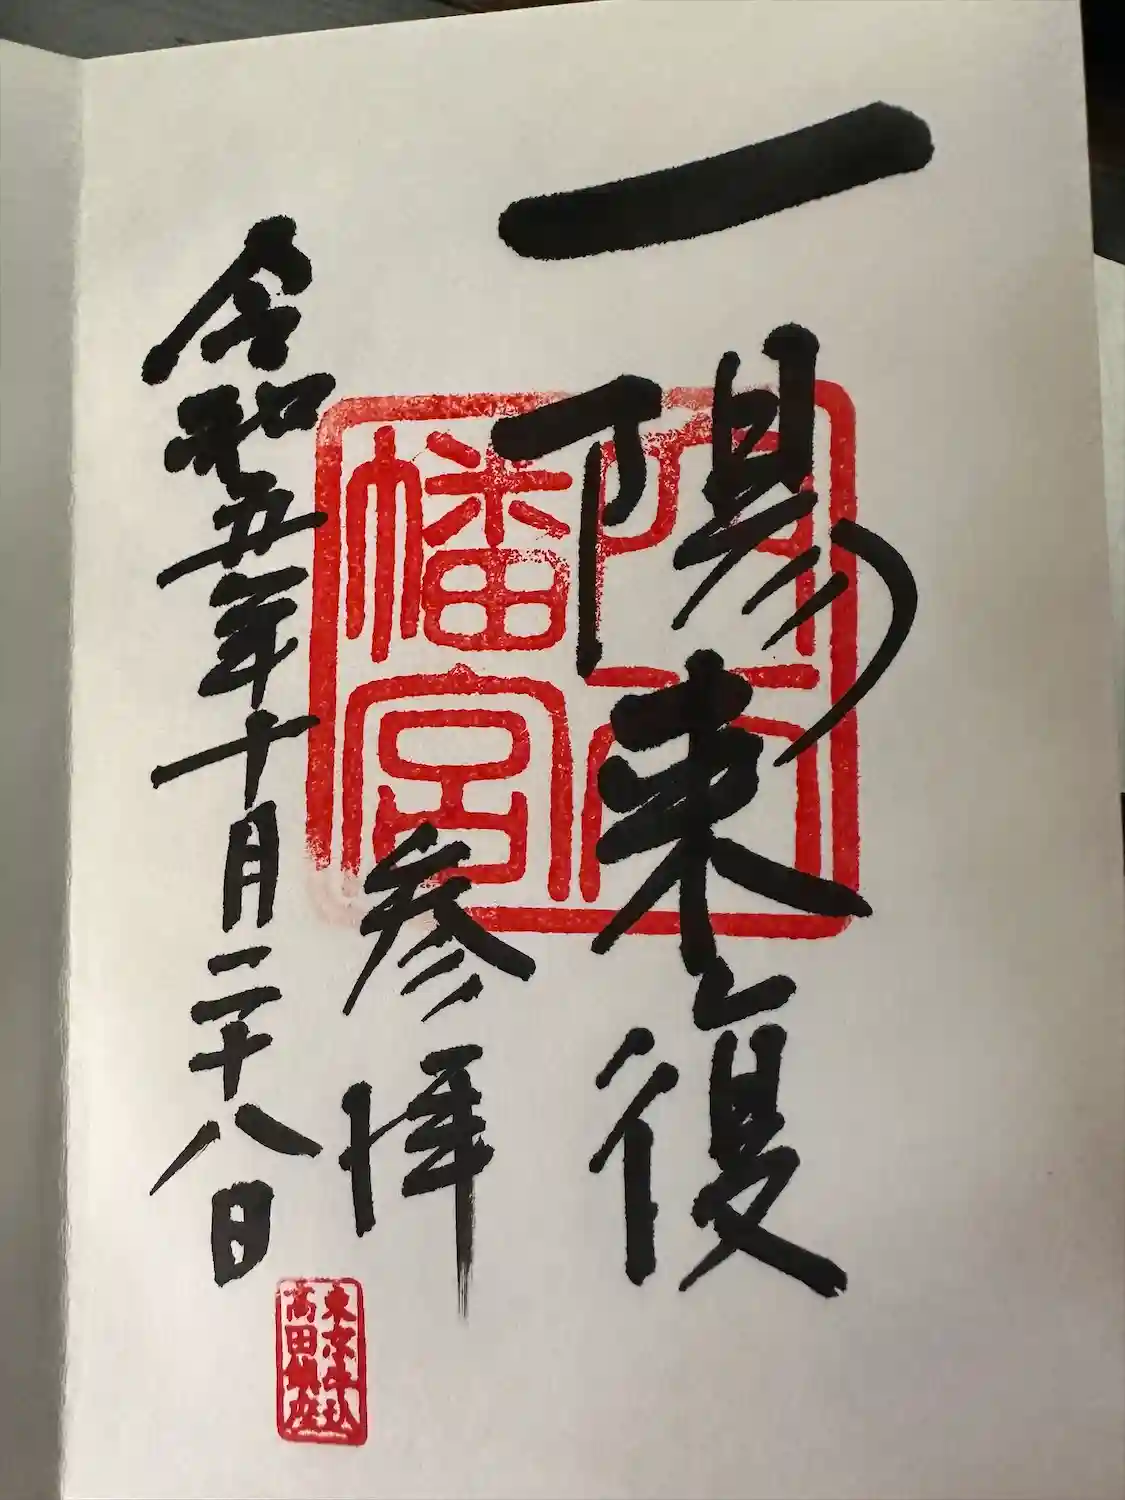 一陽来復
幡宮
参拝
令和五年十月二十八日
東京牛込
高田鎮座